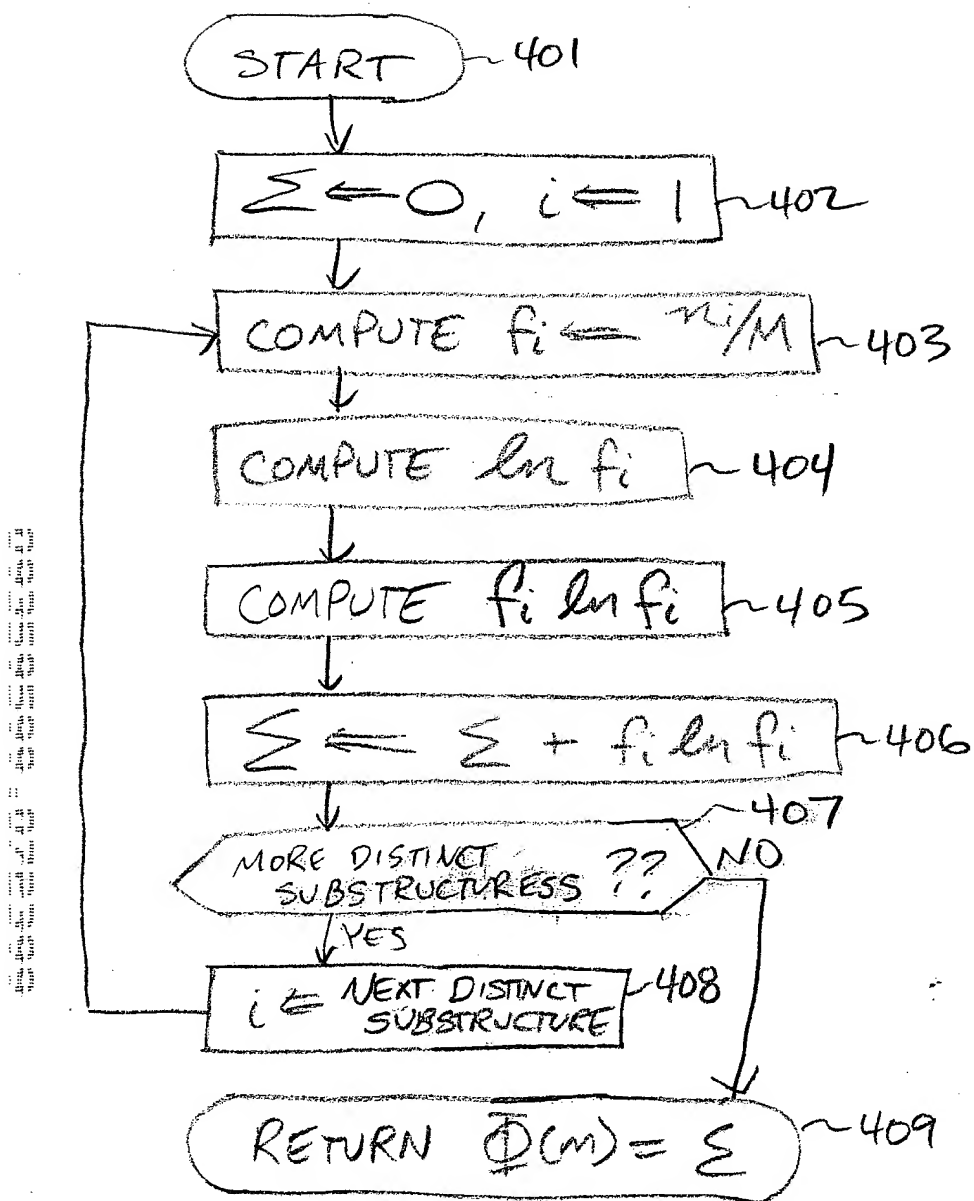 START 401
Σ ⇐ 0, i ⇐ 1 402
COMPUTE fi ⇐ ni/M 403
COMPUTE ln fi 404
COMPUTE fi ln fi 405
Σ ⇐ Σ + fi ln fi 406
407
MORE DISTINCT
SUBSTRUCTURESS ?? NO
YES
i ⇐ NEXT DISTINCT 408
SUBSTRUCTURE
RETURN Φ(m) = Σ 409